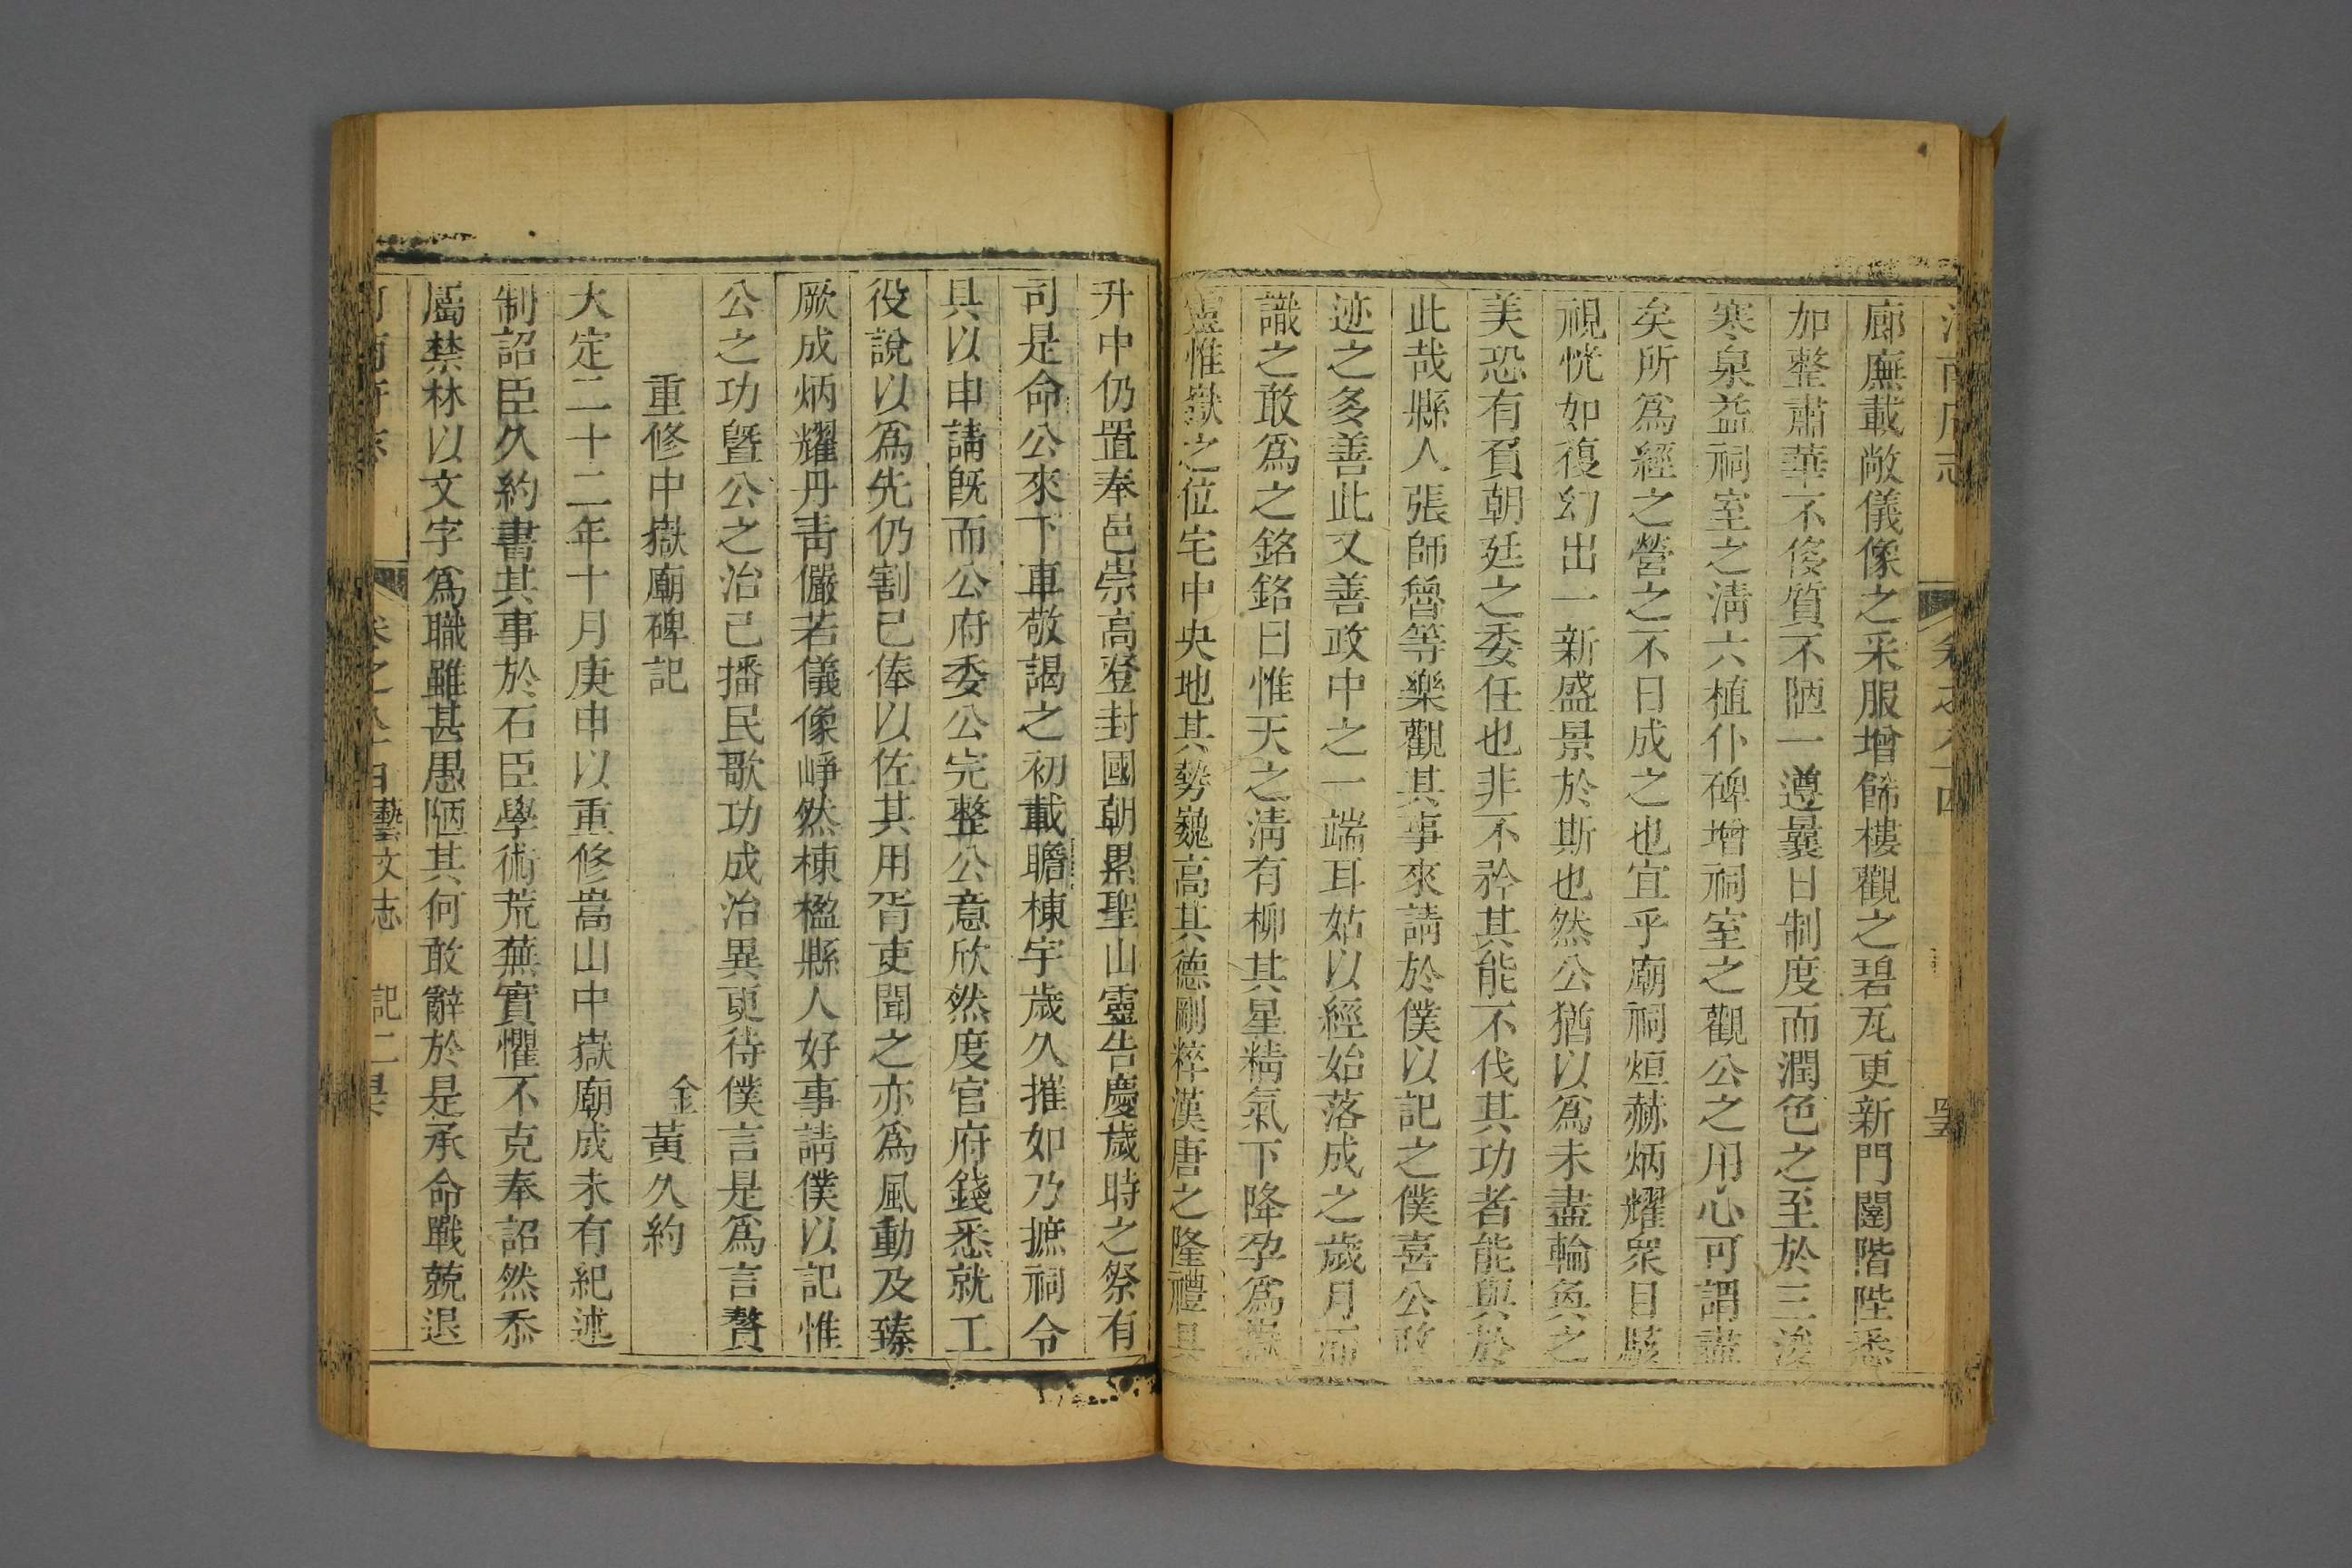 廊廡載敞儀像之采服增餙樓觀之碧瓦更新門闥階陛悉
加整肅華不侈質不陋一遵曩日制度而潤色之至於三浚
寒泉益祠室之淸六植仆碑增祠室之觀公之用心可謂盡
矣所爲經之營之不日成之也宜乎廟祠烜赫炳耀眾目駭
視恍如復幻出一新盛景於斯也然公猶以爲未盡輪奐之
美恐有負朝廷之委任也非不矜其能不伐其功者能與於
此哉縣人張師魯等樂觀其事來請於僕以記之僕喜公政
迹之多善此又善政中之一端耳姑以經始落成之歲月而
識之敢爲之銘銘曰惟天之淸有柳其星精氣下降孕爲嶽
靈惟嶽之位宅中央地其勢巍高其德剛粹漢唐之隆禮具
升中仍置奉邑崇高登封國朝累聖山靈告慶歲時之祭有
司是命公來下車敬謁之初載瞻棟宇歲久摧如乃摭祠令
具以申請旣而公府委公完整公意欣然度官府錢悉就工
役說以爲先仍割已俸以佐其用胥吏聞之亦爲風動及臻
厥成炳耀丹靑儼若儀像崢然棟楹縣人好事請僕以記惟
公之功曁公之治已播民歌功成治異更待僕言是爲言贅
重修中嶽廟碑記
金黃久約
大定二十二年十月庚申以重修嵩山中嶽廟成未有紀述
制詔臣久約書其事於石臣學術荒蕪實懼不克奉詔然忝
屬禁林以文字爲職雖甚愚陋其何敢辭於是承命戰兢退
藝文志 記二